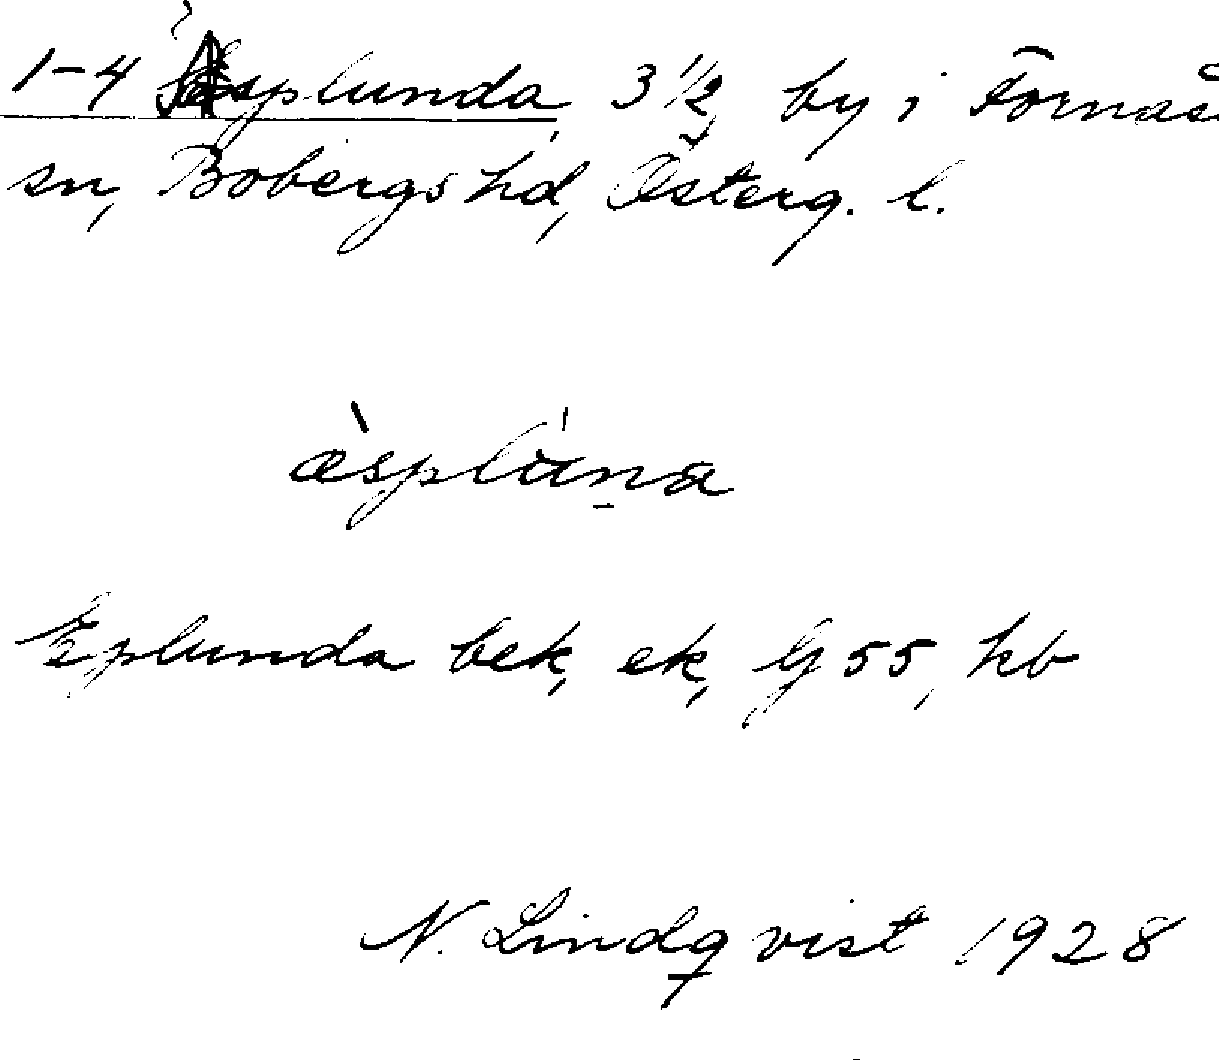 1-4 Asplunda, 3 1/2, by i Fornåsa
sn, Bobergs hd, Österg. l.
æ̀splúna
Esplunda bek, ek, Gj 55, kb
N. Lindqvist 1928